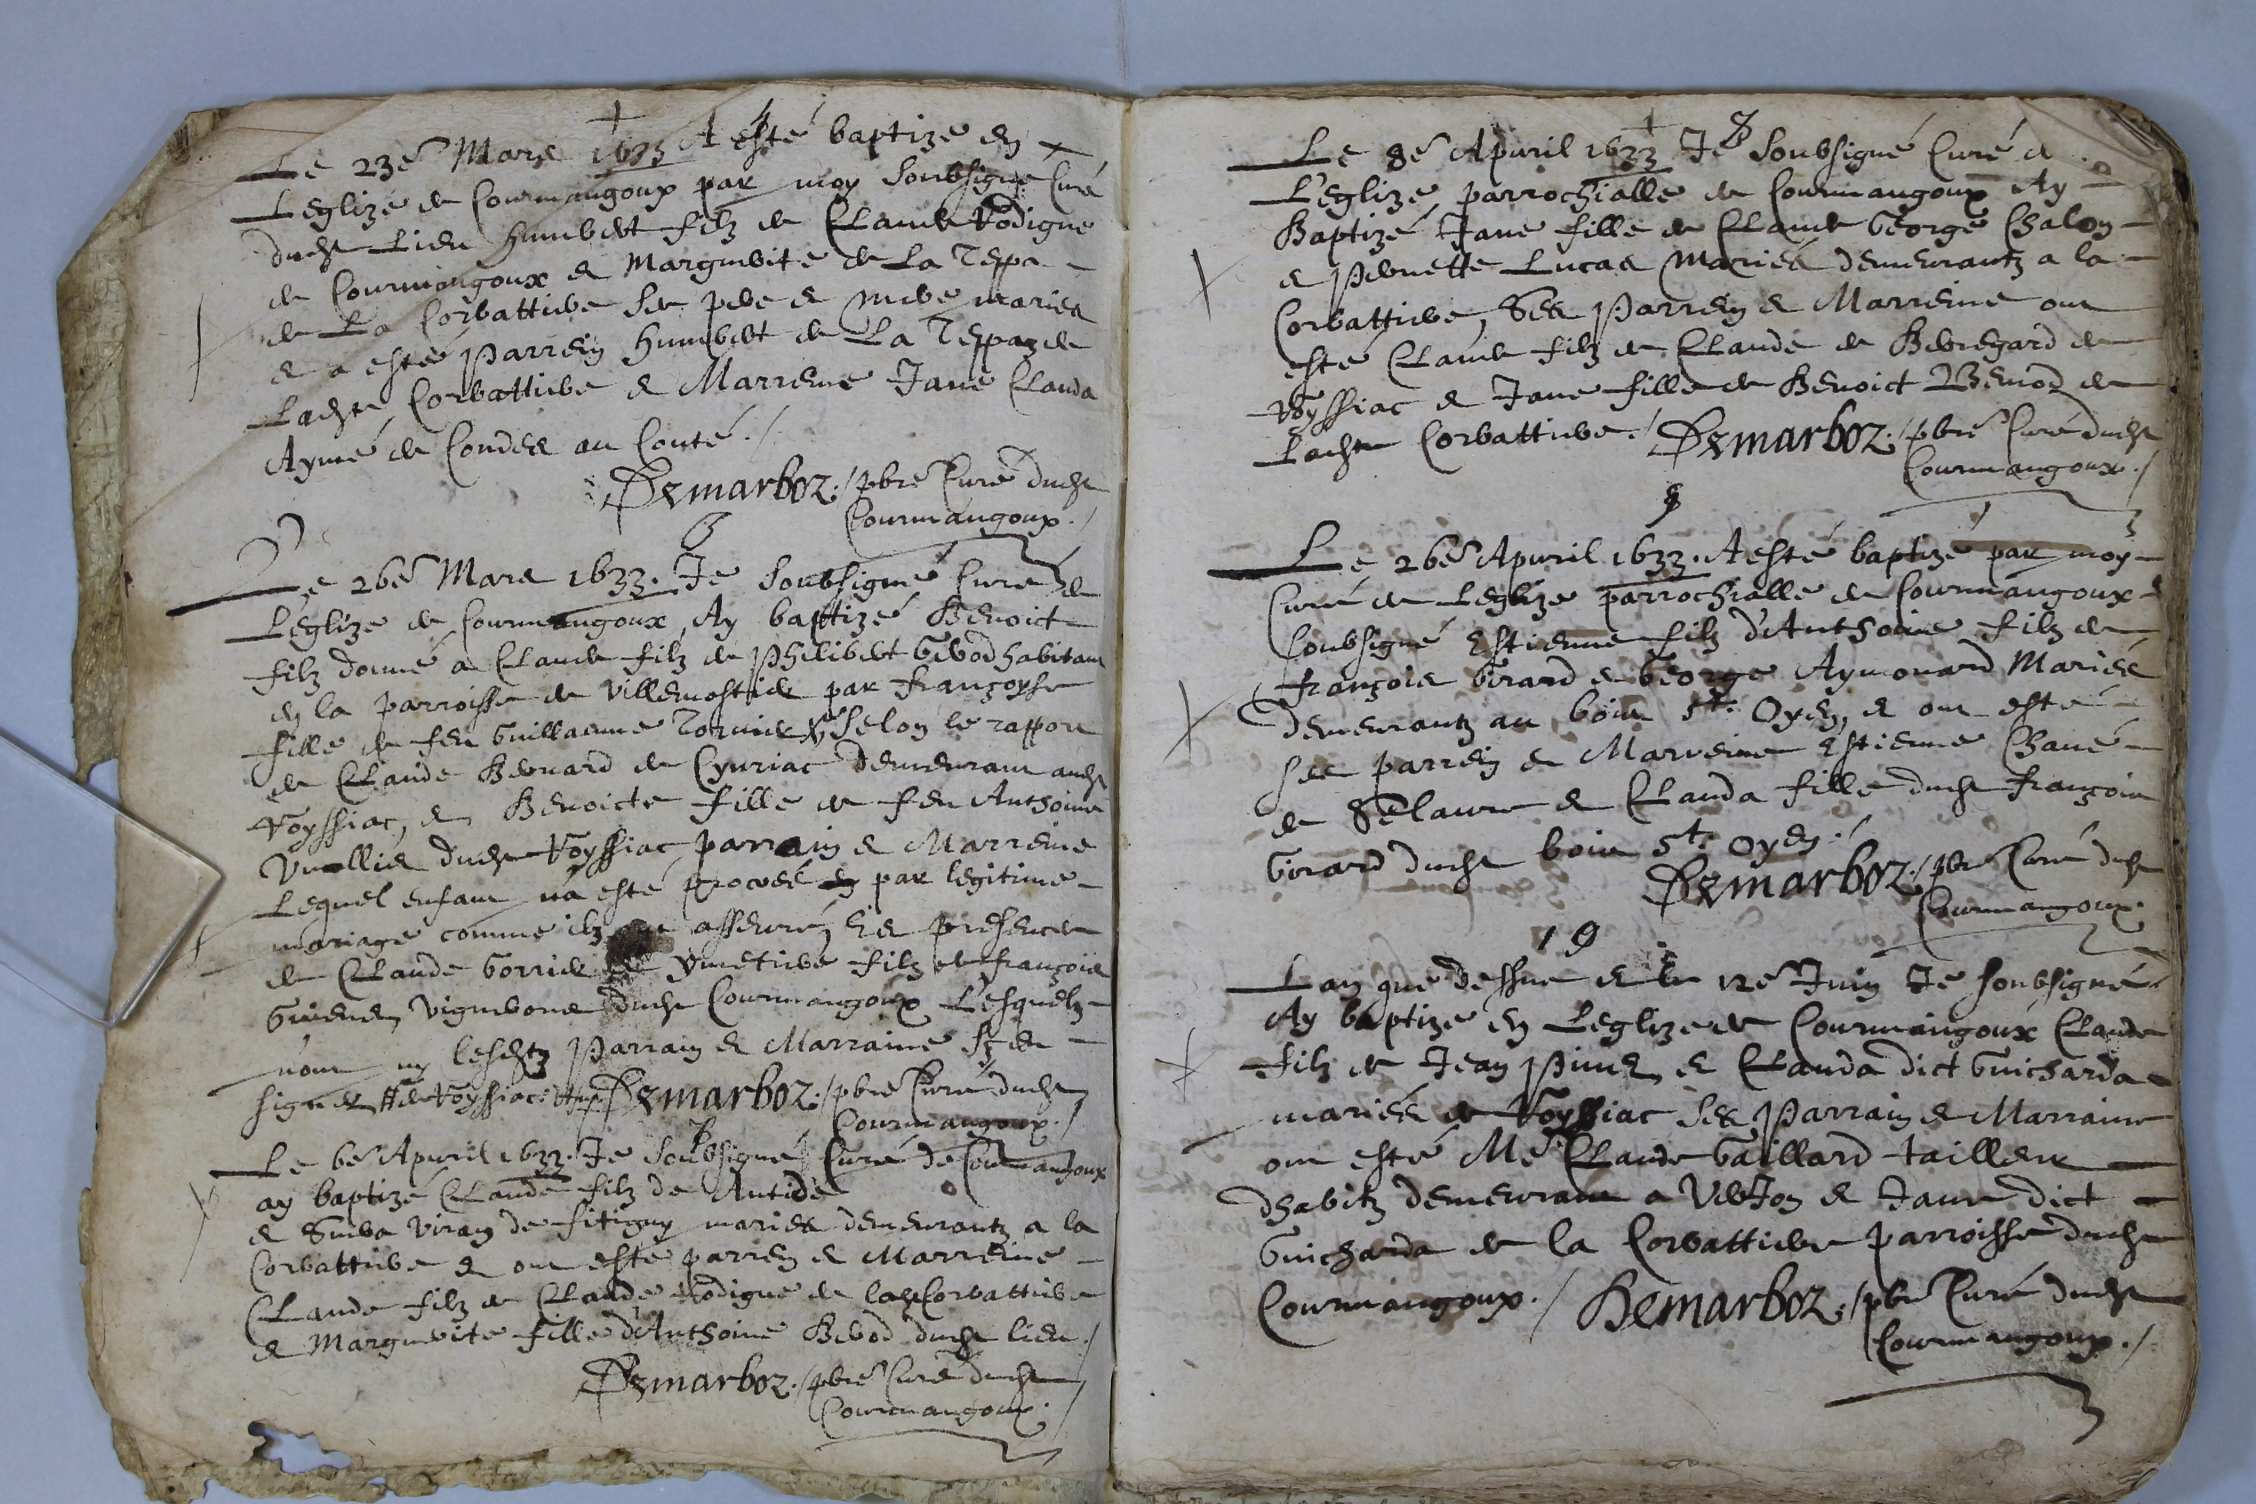 Le 23e Mars 1633 A esté baptize en
Leglize de Courmangoux par moy soubsigne Curé
dudt Lieu Humbert filz de Claude Rodigue
de Courmangoux & Marguerite de La Teppa
de La Corbattiere ses pere & mere maries
& a esté Parrein Humbert de La Teppaz de
Ladte Corbattiere & Marreine Jane Clauda
Aymé de Condes au Conté ./
Demarboz ./ pbre Curé dudt
Courmangoux ./
6
Le 26e Mars 1633. Je soubsigné Curé de
Leglize de Courmangoux Ay baptizé Benoict
filz donné a Claude filz de Philibert habitant
en la parroisse de Villemostier par françoyse
fille de feu Guillaume selon le rapport
de Claude Bernard de Cyuriac demeurant audt
Royssiac, & Benoicte fille de feu Anthoine
dudt Royssiac parrain & Marreine
Lequel enfant na esté procréé par legitime
mariage comme ilz ont asseuré, Es presences
de Claude Gorrier filz de françois
dudt Courmangoux Lesquelz
nont ny lesdtz Parrain & Marraine sceu
signer Demarboz ./ pbre Curé dudt
Courmangoux ./
Le 6e Apuril 1633. Je Soubsigné Curé de Courmangoux
ay baptizé Claude filz de Antide
& de fitigny maries demeurantz a la
Corbattiere & ont esté parrein & Marreine
Claude filz de Claude Rodigue de lad Corbattiere
& Marguerite fille d'Anthoine dudt lieu ./
Demarboz ./ pbre Curé dudt
Courmangoux ./
Le 8e Apuril 1633 Je Soubsigné Curé de
L'eglize parrochialle de Courmangoux Ay
Baptizé Jane fille de Claude George Chalon
& Pernette Lucas Mariés demeurantz a la
Corbattiere, Ses Parrein & Marreine ont
esté Claude filz de Claude de Beuregard de
Royssiac & Jane fille de Benoict de
Ladte Corbattiere ./ Demarboz ./ pbre Curé dudt
Courmangoux ./
8
Le 26e Apuril 1633. A esté baptizé par moy
Curé de Leglize parrochialle de Courmangoux
soubsigné Estienne filz d'Anthoine filz de
françois Girard & George Aymonard Mariés
demeurantz au bois St. Oyen, & ont esté
ses parrein & Marreine Estienne Chané
de & Clauda fille dudt françois
Girard dudt bois St. Oyen ./
Demarboz ./ pbre Curé dudt
Courmangoux.
19
Lan que dessus & le 12e Juin Je soubsigné
Ay baptizé en Leglize de Courmangoux Claude
filz de Jean & Clauda dict Guicharda
mariés de Royssiac Ses Parrain & Marraine
ont esté Me Claude Gaillard tailleur
dhabitz demeurant a Verjon & Jane dict
Guicharda de la Corbattiere parroisse dudt
Courmangoux ./ Demarboz ./ pbre Curé dudt
Courmangoux ./